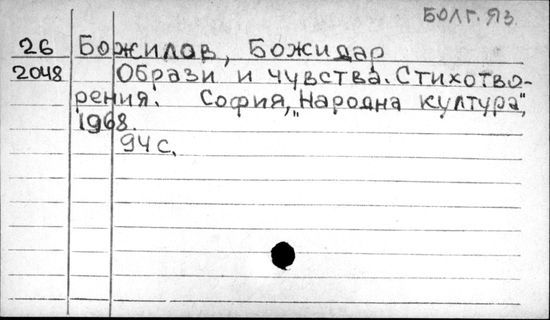 БОЛГ. ЯЗ.
26 Божилов, Божидар
2048 Образи и чувства. Стихотво-
рения. София, „Народна култура",
1968.
94 с.